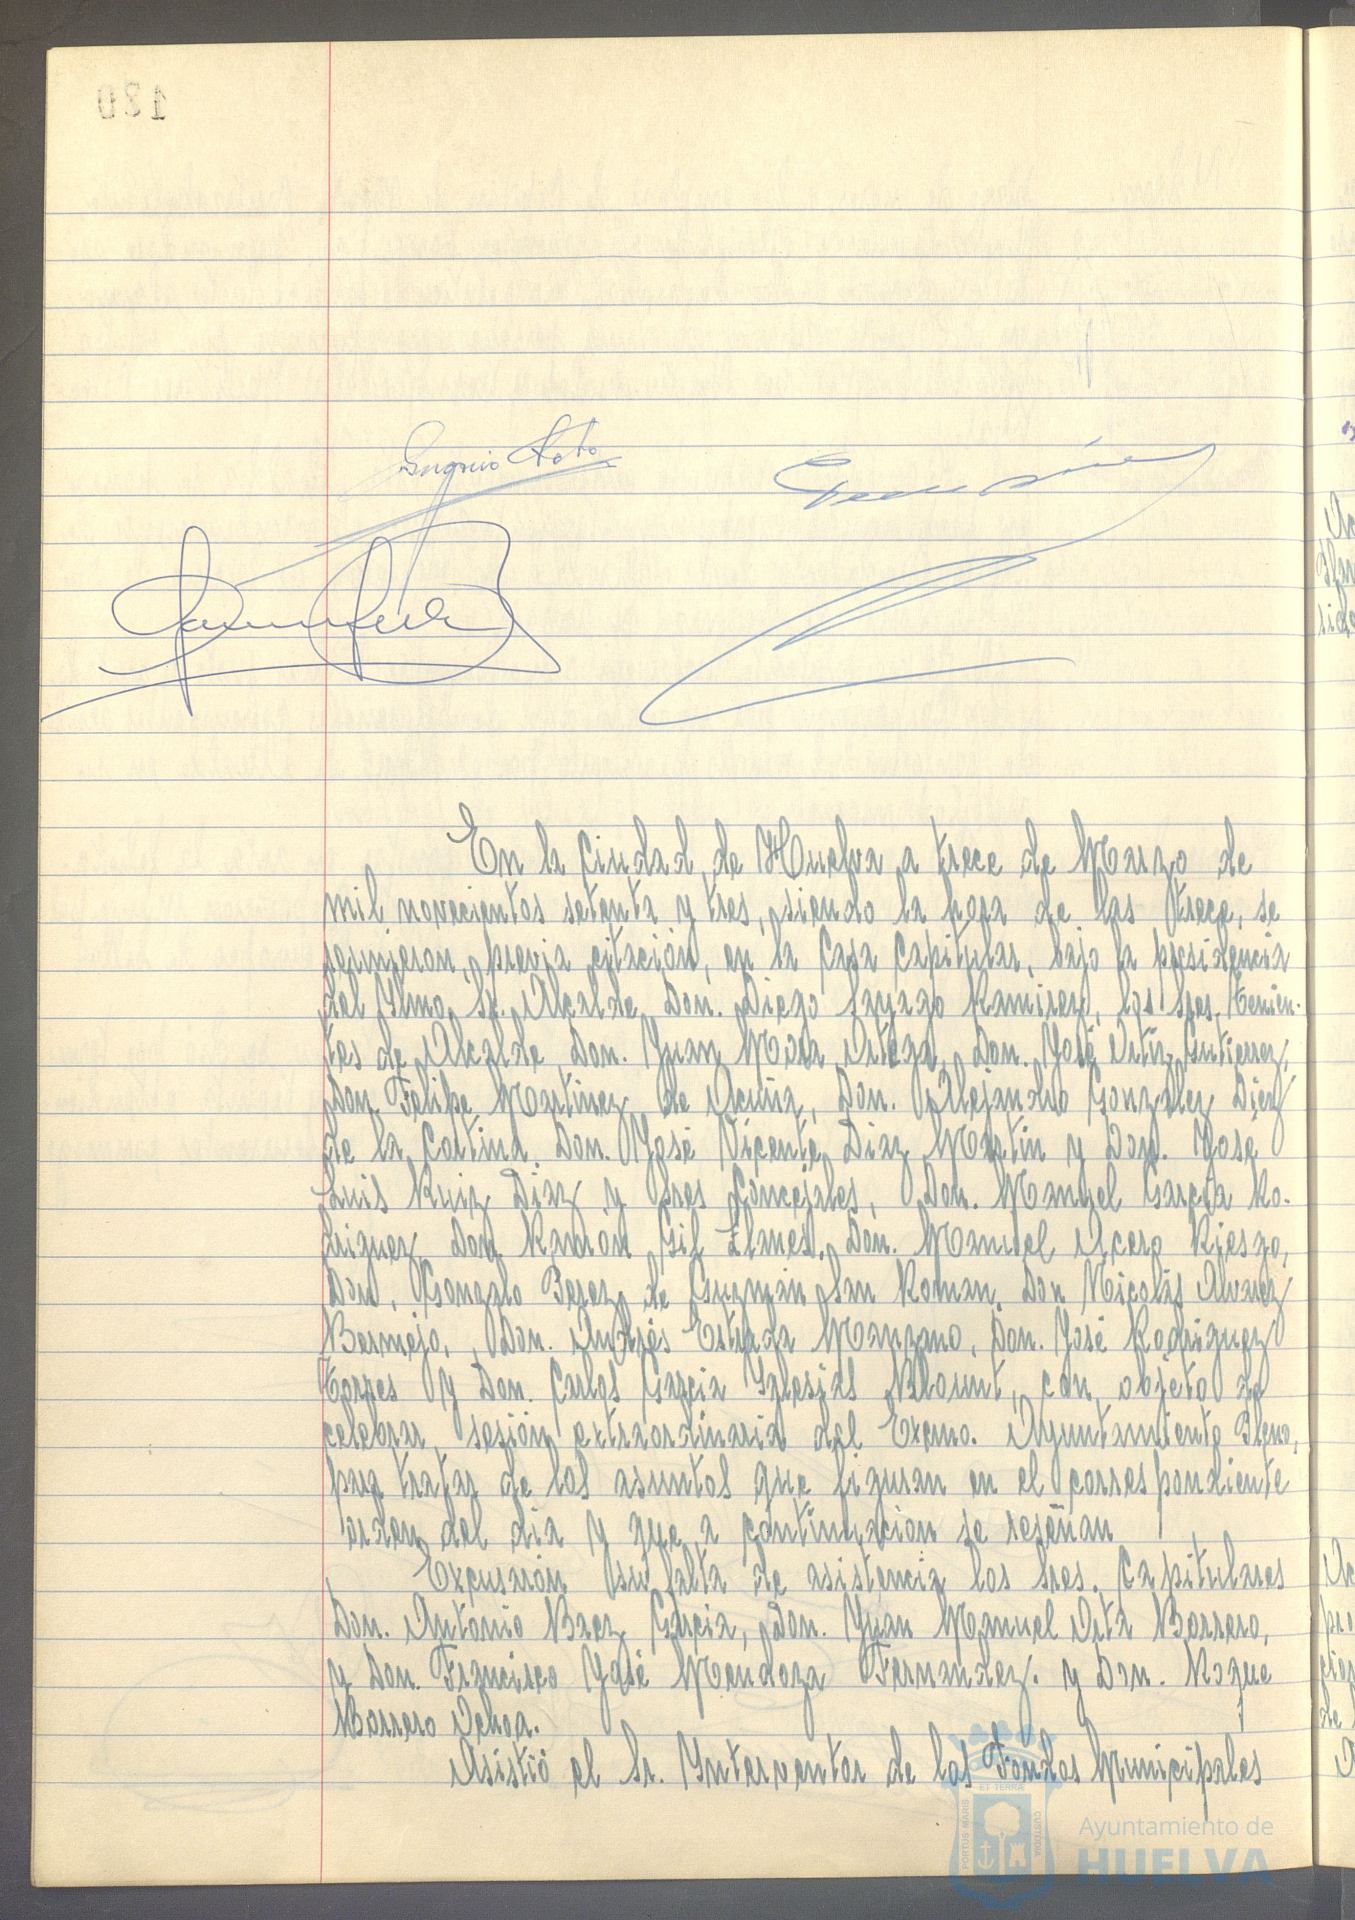 En la Ciudad de Huelva a trece de Marzo de
mil novecientos setenta y tres, siendo la hora de las trece, se
reunieron, previa citación, en la Casa Capitular, bajo la presidencia
del Ylmo. Sr. Alcalde Don. Diego Sayago Ramirez, los Sres. Tenien-
tes de Alcalde Don. Juan Mora Ortega, Don. José Ortiz Gutierrez,
Don Felipe Martinez de Acuña, Don. Alejandro Gonzalez Diez
de la Cortina, Don. José Vicente Diaz Martin y Don. José
Luis Ruiz Diaz y Sres Concejales, Don. Manuel Garcia Ro-
driguez, Don Ramón Gil Llanes, Don. Manuel Acero Riesgo,
Don. Gonzalo Perez de Guzmán San Roman, Don Nicolás Alvarez
Bermejo, Don. Andrés Estrada Manzano, Don. José Rodriguez
Torres y Don. Carlos Garcia Yglesias Blount, con objeto de
celebrar sesión extraordinaria del Excmo. Ayuntamiento Pleno,
para tratar de los asuntos que figuran en el correspondiente
orden del dia y que a continuacion se reseñan
Excusarón su falta de asistencia los Sres. Capitulares
Don. Antonio Baez Garcia, Don. Juan Manuel Orta Borrero,
y Don. Francisco José Mendoza Fernandez. y Don. Roque
Borrero Ochoa.
Asistió el Sr. Ynterventor de los Fondos Municipales
Ayuntamiento de
HUELVA